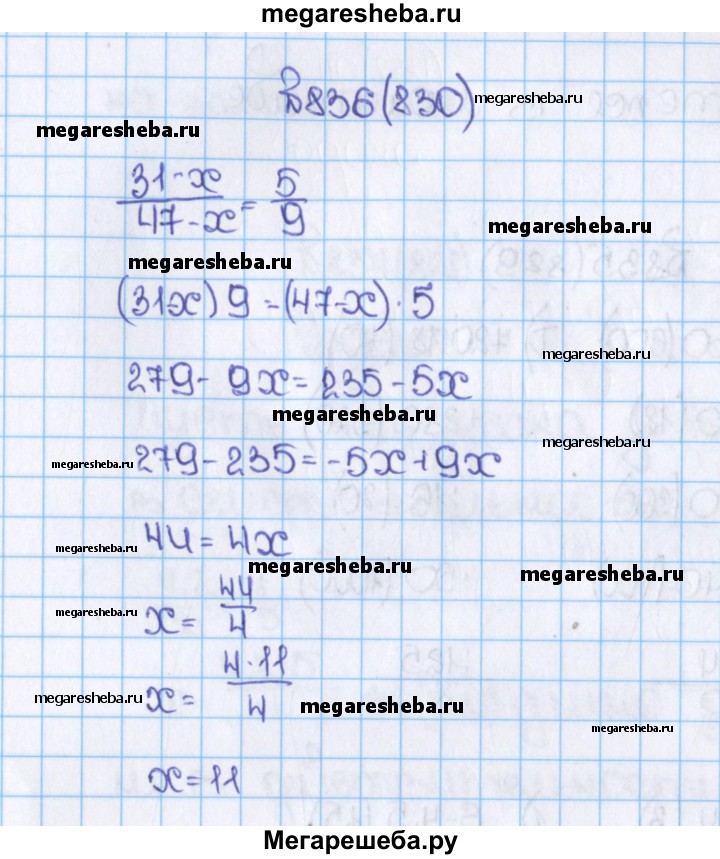 megaresheba.ru
№836(830) megaresheba.ru
megaresheba.ru
31-x/47-x = 5/9
megaresheba.ru
megaresheba.ru
(31x)9=(47-x)·5
megaresheba.ru
279-9x=235-5x
megaresheba.ru
megaresheba.ru
megaresheba.ru 279-235=-5x+9x
megaresheba.ru 44=4x
megaresheba.ru
megaresheba.ru
megaresheba.ru x=44/4
megaresheba.ru x=4·11/4
megaresheba.ru
x=11
Мегарешеба.ру